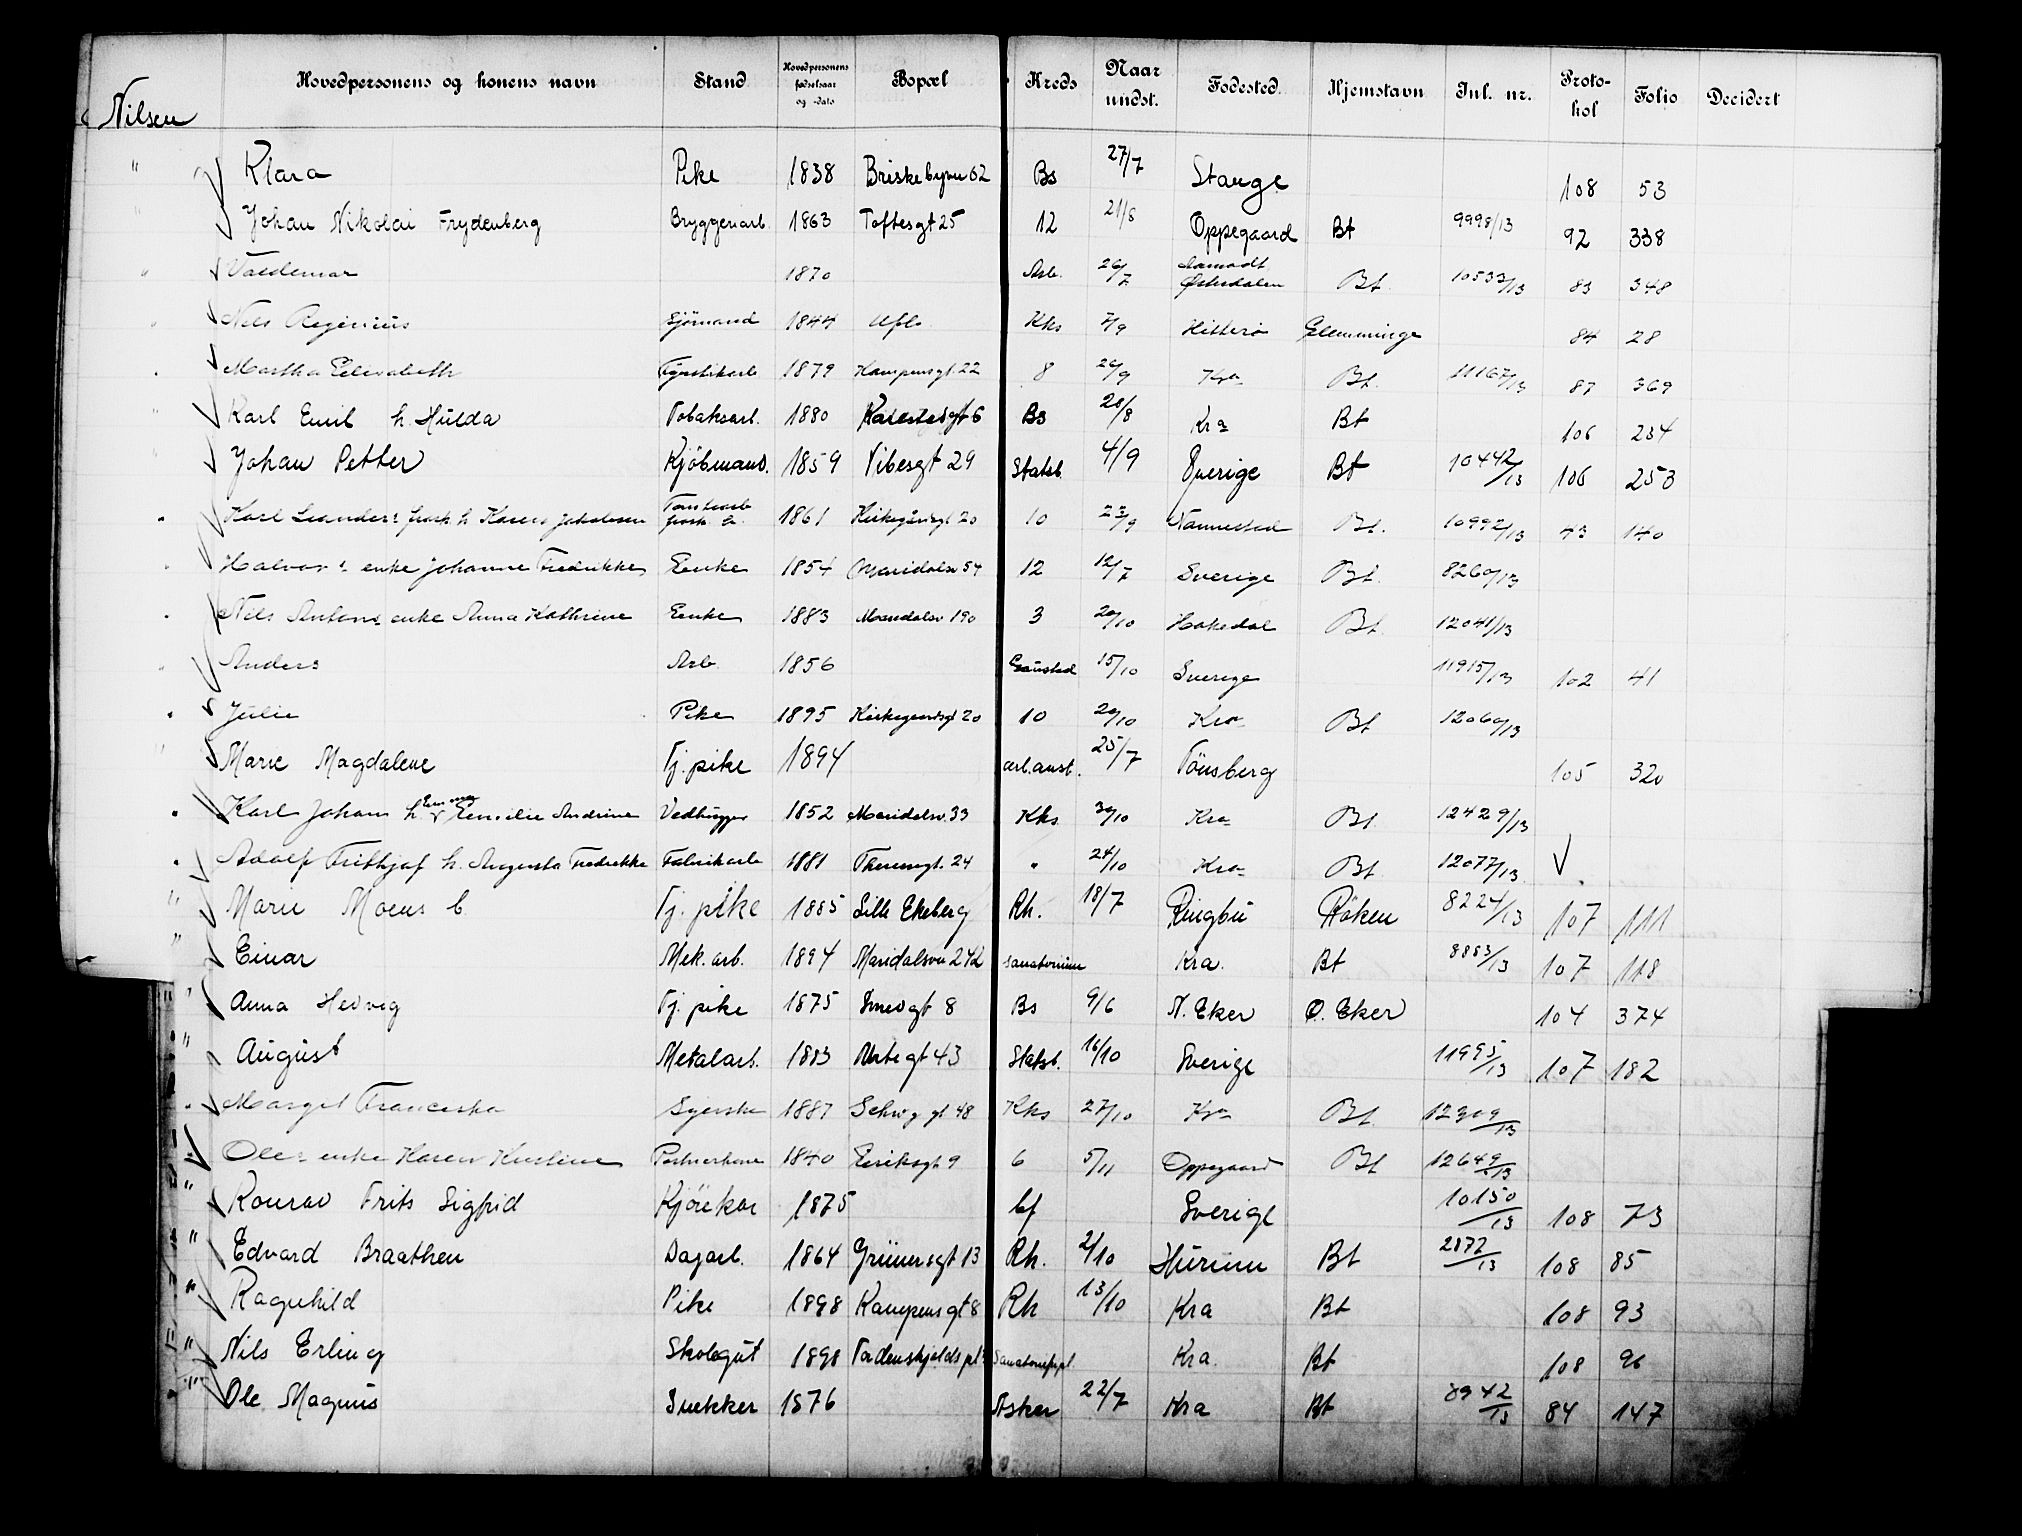 Hovedpersonens og konens navn Stand Hovedpersonens fødselsaar og -dato Bopæl Kreds Naar undst. Fødested Hjemstavn Inl. nr. Protokol Folio Decidert
Nilsen
" Klara Pike 1838 Briskebyvn 62 Bs 27/7 Stange 108 53
" Johan Nikolai Frydenberg Bryggeriarb. 1863 Toftesgt 25 12 21/8 Oppegaard Bt 9998/13 92 338
" Valdemar 1870 Arb. 26/7 Aamodt Østerdalen Bt. 10533/13 83 348
" Nils Reginius Sjömand 1844 Kks 7/9 Hitterö Glemminge 84 28
" Martha Elisabeth 1879 Kampensgt. 22 8 26/9 Kra Bt. 11167/13 87 369
" Karl Emil h. Hulda Tobaksarb. 1880 6 Bs 28/8 Kra Bt 106 234
" Johan Petter Kjöbmand. 1859 Vibesgt 29 Statsb. 4/9 Sverige Bt 10442/13 106 253
" Karl Leanders frask. h. Karen Jakobsen frask. h. 1861 Kirkegårdsgt 20 10 23/9 Nannestad Bt. 10992/13 43 140
" Halvors enke Johanne Fredrikke Enke 1854 Maridalsv 54 12 12/7 Sverige Bt. 8260/13
" Nils Antons enke Anna Kathrine Enke 1883 Maridalsv 190 3 20/10 Hakedal Bt 12041/13
" Anders Arb. 1856 Gaustad 15/10 Sverige 11915/13 102 41
" Julie Pike 1895 Kirkegaardsgt 20 10 20/10 Kra Bt 12060/13
" Marie Magdalene Tj. pike 1894 arb.anst. 25/7 Tönsberg 105 320
" Karl Johan h. Emma Emilie Andrine Vedhugger 1852 Maridalsv. 33 Kks 30/10 Kra Bt. 12429/13
" Adolf Frithjof h. Augusta Fredrikke Fabrikarb 1881 Theresegt. 24 " 24/10 Kra Bt. 12077/13
" Marie Moens Tj. pike 1885 Lille Ekeberg Rh. 18/7 Ringbu Röken 8224/13 107 111
" Einar Mek. arb. 1894 Maridalsvn 242 sanatorium Kra. Bt 8883/13 107 118
" Anna Hedvig Tj. pike 1875 Smedgt 8 Bs 9/6 N. Eker O. Eker 104 374
" August Metalarb. 1883 Urtegt 43 Statsb. 16/10 Sverige 11995/13 107 182
" Margit Franceska Syerske 1887 Schwgt 48 Kks 27/10 Kra Bt. 12309/13
" Oles enke Karen Kristine 1840 Eeriksgt 9 6 5/11 Oppegaard Bt 12649/13
" Konrad Frits Sigfrid Kjörekar 1875 Sverige 10150/13 108 73
" Edvard Braathen Dagarb. 1864 Grünersgt 13 Rh. 2/10 Hurum Bt 2872/13 108 85
" Ragnhild Pike 1898 Kampensgt 8 Rh 13/10 Kra Bt 108 93
" Nils Erling Skolegut 1898 Tordenskjolds pl. Kra. Bt 108 96
" Ole Magnus Snekker 1876 Asker 22/7 Kra Bt 8942/13 84 147